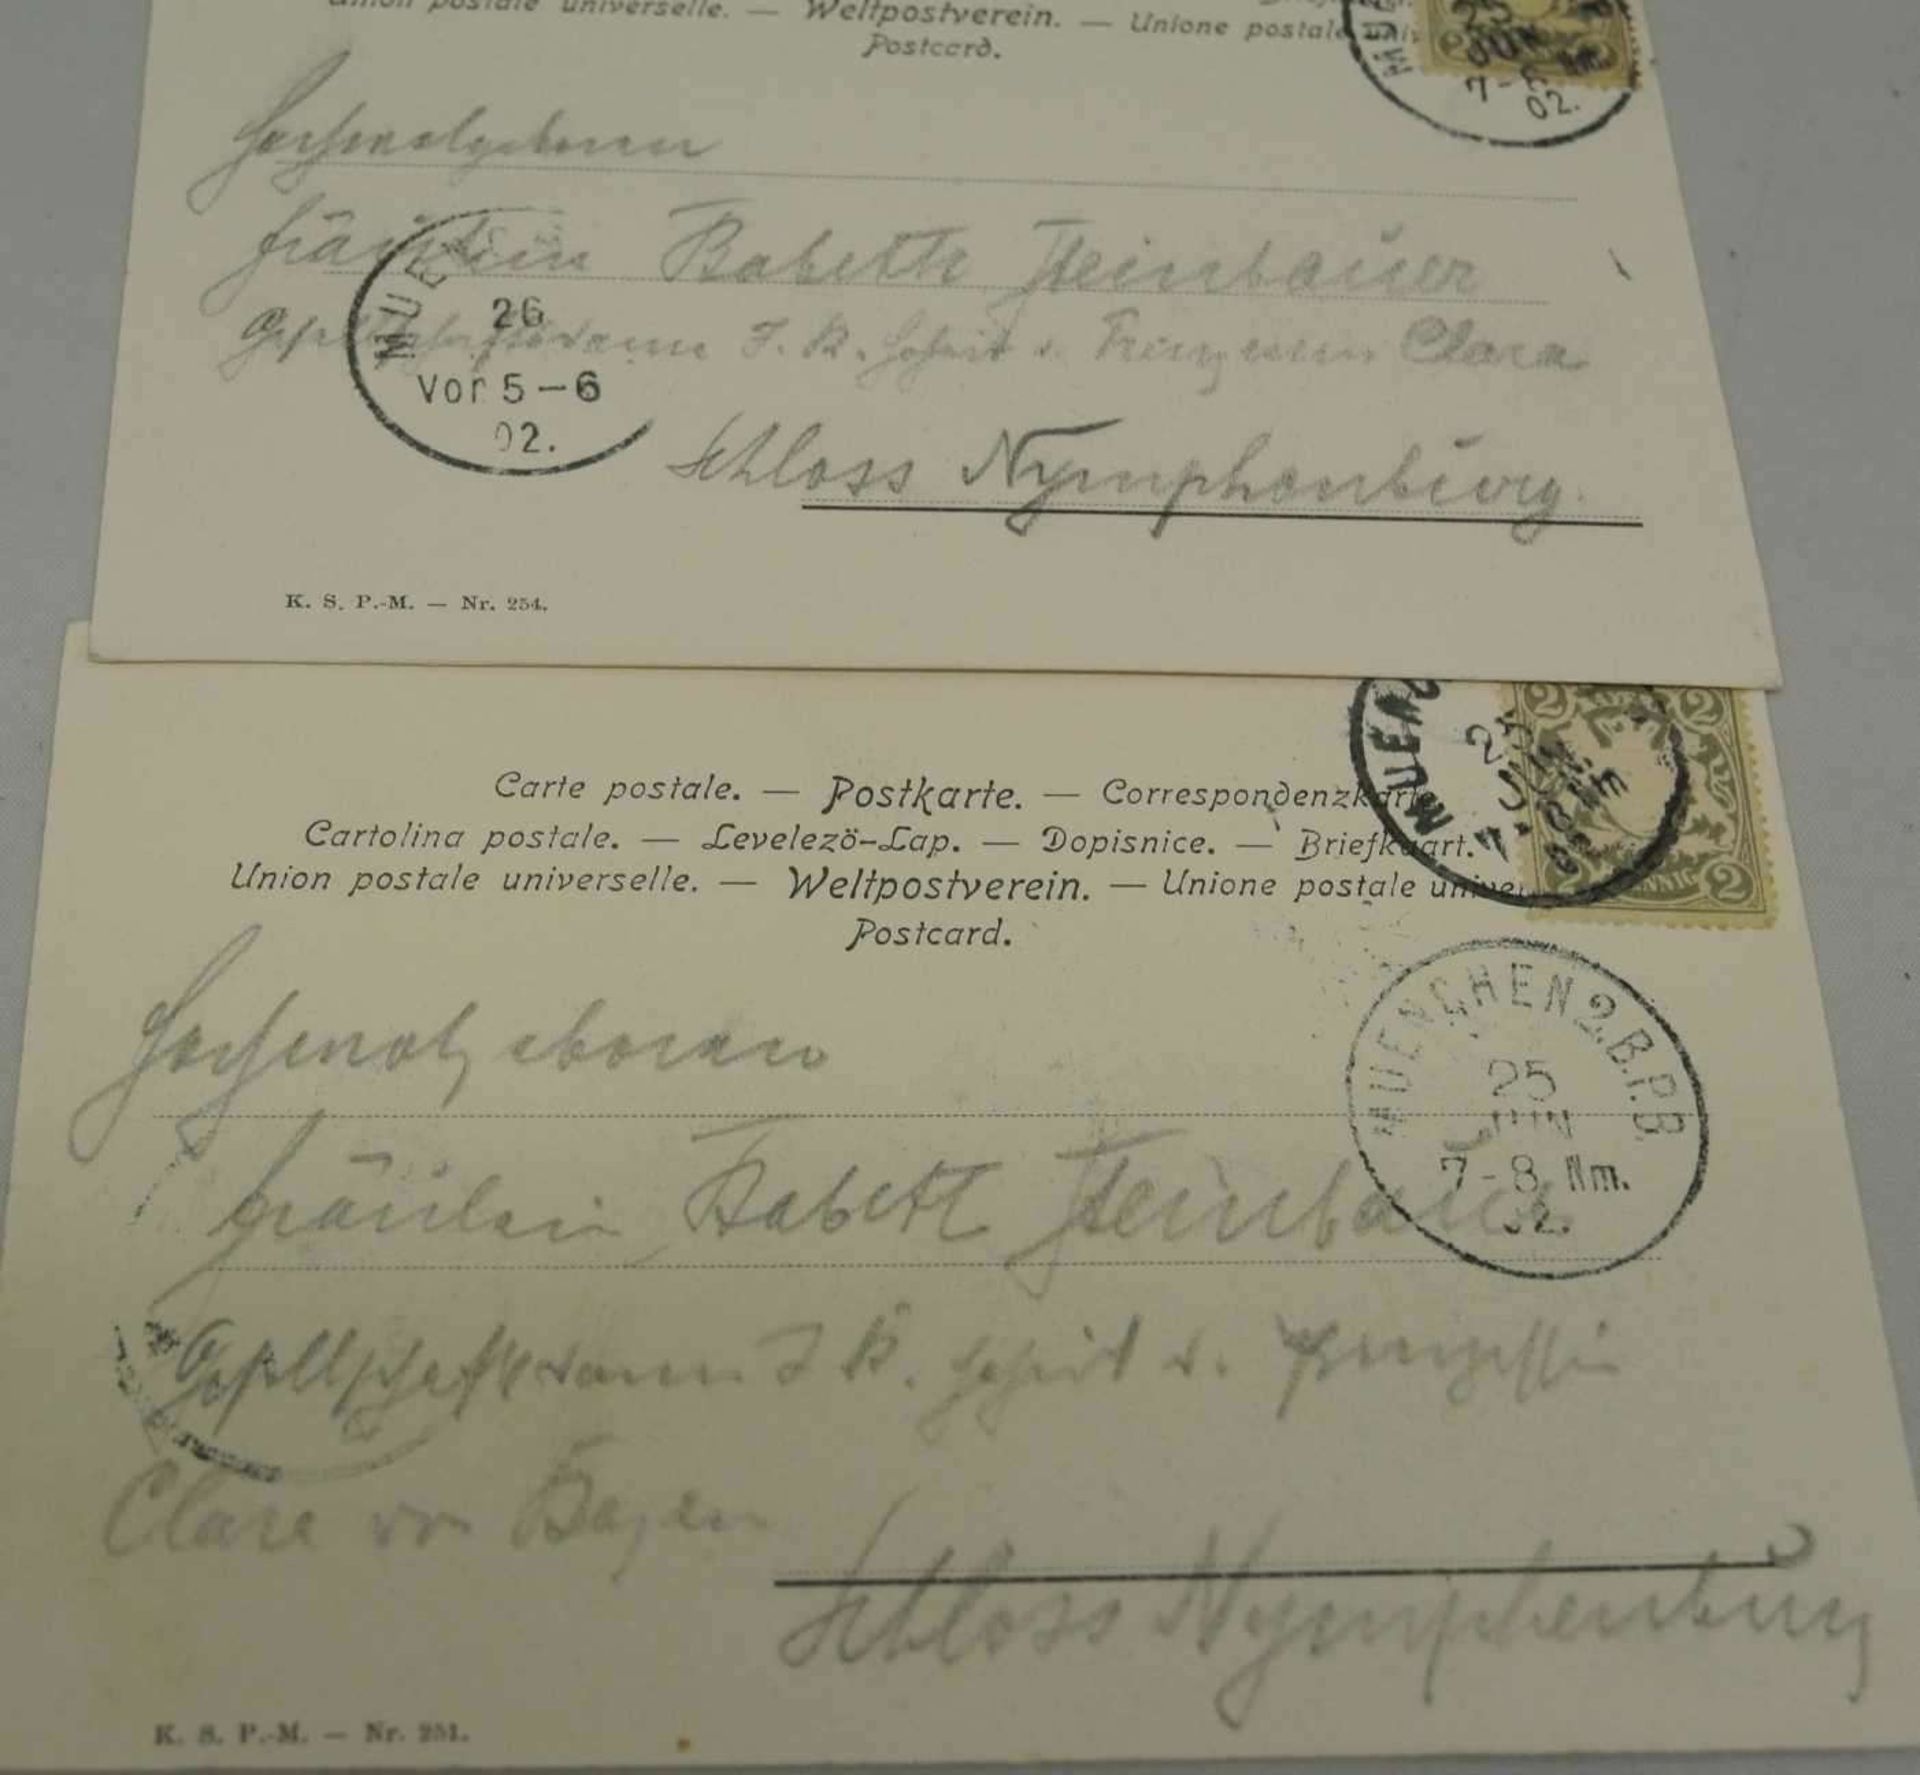 Union postale universelle. — Weltpostverein. — Unione postale univ
Postcard.
MUE
25
JUN
7-8
02.
Hochwolgeboren
Fräulein Babette Steinbauer
Gesellschaftsdame I. K. Hoheit d. Prinzessin Clara
MUE
26
Vor 5-6
02.
Schloss Nymphenburg.
K. S. P.-M. — Nr. 254.
MUEN
25
JUN
2 2
2 PFENNIG 2
Carte postale. — Postkarte. — Correspondenzkarte
Cartolina postale. — Levelezö-Lap. — Dopisnice. — Briefkaart.
Union postale universelle. — Weltpostverein. — Unione postale univer
Postcard.
MUENCHEN 2.B.P.B.
25
JUN
7-8 Nm.
02.
Hochwolgeboren
Fräulein Babett Steinbauer
Gesellschaftsdame I K. Hoheit d. Prinzessin
Clara von Bayern
Schloss Nymphenburg
K. S. P.-M. — Nr. 251.